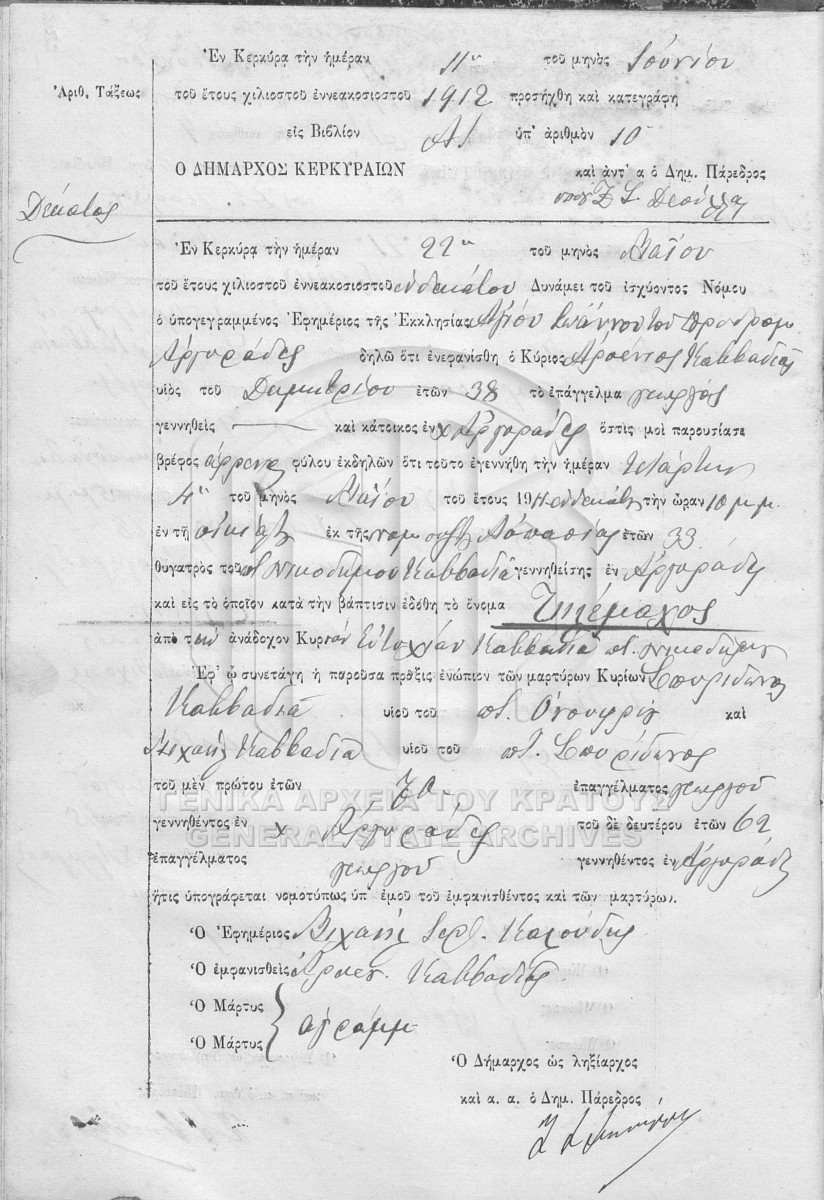 Ἐν Κερκύρᾳ τὴν ἡμέραν 11η τοῦ μηνὸς Ἰουνίου
Ἀριθ. Τάξεως τοῦ ἔτους χιλιοστοῦ ἐννεακοσιοστοῦ 1912 προσήχθη καὶ κατεγράφη
εἰς Βιβλίον Α/ ὑπ' ἀριθμὸν 10
Ο ΔΗΜΑΡΧΟΣ ΚΕΡΚΥΡΑΙΩΝ καὶ ἀντ' α ὁ Δημ. Πάρεδρος
Δέκατος
Ἐν Κερκύρᾳ τὴν ἡμέραν 22η τοῦ μηνὸς Μαΐου
τοῦ ἔτους χιλιοστοῦ ἐννεακοσιοστοῦ ἑνδεκάτου Δυνάμει τοῦ ἰσχύοντος Νόμου
ὁ ὑπογεγραμμένος Ἐφημέριος τῆς Ἐκκλησίας Ἁγίου Ἰωάννου του Προδρομου
Ἀργυράδες δηλῶ ὅτι ἐνεφανίσθη ὁ Κύριος Ἀρσένιος Καββαδίας
υἱὸς τοῦ Δημητρίου ἐτῶν 38 τὸ ἐπάγγελμα γεωργός
γεννηθεὶς — καὶ κάτοικος ἐν χ Ἀργυράδες ὅστις μοὶ παρουσίασε
βρέφος ἄρρενος φύλου ἐκδηλῶν ὅτι τοῦτο ἐγεννήθη τὴν ἡμέραν τετάρτην
4η τοῦ μηνὸς Μαΐου τοῦ ἔτους 1911 ἑνδεκάτου τὴν ὥραν 10 μ.μ.
ἐν τῇ οἰκίᾳ ἐκ τῆς Ἀσπασίας ἐτῶν 33
θυγατρὸς τοῦ ποτ. Νικοδήμου Καββαδία γεννηθείσης ἐν Ἀργυράδες
καὶ εἰς τὸ ὁποῖον κατὰ τὴν βάπτισιν ἐδόθη τὸ ὄνομα Τηλέμαχος
ἀπὸ τὴν ἀνάδοχον Κυρίαν Εὐτυχίαν Καββαδία ποτ. Νικοδήμου
Ἐφ' ᾧ συνετάγη ἡ παροῦσα πρᾶξις ἐνώπιον τῶν μαρτύρων Κυρίων Σπυρίδωνος
Καββαδία υἱοῦ τοῦ ποτ. Ὀνουφρίου καὶ
Μιχαὴλ Καββαδία υἱοῦ τοῦ ποτ. Σπυρίδωνος
τοῦ μὲν πρώτου ἐτῶν 70 ἐπαγγέλματος γεωργοῦ
γεννηθέντος ἐν χ Ἀργυράδες τοῦ δὲ δευτέρου ἐτῶν 62
ἐπαγγέλματος γεωργοῦ γεννηθέντος ἐν Ἀργυράδες
ἥτις ὑπογράφεται νομοτύπως ὑπ' ἐμοῦ τοῦ ἐμφανισθέντος καὶ τῶν μαρτύρων.
Ὁ Ἐφημέριος Μιχαὴλ Ἱερ. Καλούδης
Ὁ ἐμφανισθεὶς Ἀρσεν. Καββαδίας
Ὁ Μάρτυς
Ὁ Μάρτυς ἀγράμμ.
Ὁ Δήμαρχος ὡς ληξίαρχος
καὶ α. α. ὁ Δημ. Πάρεδρος
ΓΕΝΙΚΑ ΑΡΧΕΙΑ ΤΟΥ ΚΡΑΤΟΥΣ
GENERAL STATE ARCHIVES